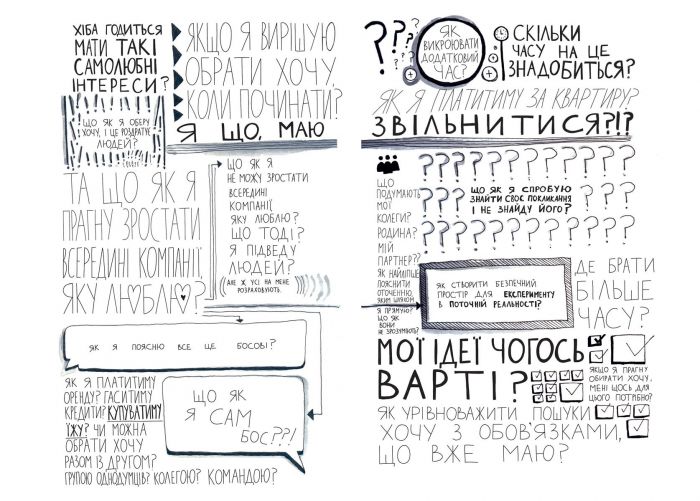 ХІБА ГОДИТЬСЯ
МАТИ ТАКІ
САМОЛЮБНІ
ІНТЕРЕСИ?
ЯКЩО Я ВИРІШУЮ
ОБРАТИ ХОЧУ,
КОЛИ ПОЧИНАТИ?
ЩО ЯК Я ОБЕРУ
ХОЧУ, І ЦЕ РОЗДРАТУЄ
ЛЮДЕЙ?
Я ЩО, МАЮ
ТА ЩО ЯК Я
ПРАГНУ ЗРОСТАТИ
ВСЕРЕДИНІ КОМПАНІЇ,
ЯКУ ЛЮБЛЮ?
ЩО ЯК Я
НЕ МОЖУ ЗРОСТАТИ
ВСЕРЕДИНІ
КОМПАНІЇ
ЯКУ ЛЮБЛЮ?
ЩО ТОДІ?
Я ПІДВЕДУ
ЛЮДЕЙ?
(АДЖЕ Ж УСІ НА МЕНЕ
РОЗРАХОВУЮТЬ)
ЯК Я ПОЯСНЮ ВСЕ ЦЕ БОСОВІ?
ЯК Я ПЛАТИТИМУ
ОРЕНДУ? ГАСИТИМУ
КРЕДИТИ? КУПУВАТИМУ
ЇЖУ? ЧИ МОЖНА
ОБРАТИ ХОЧУ
РАЗОМ ІЗ ДРУГОМ?
ГРУПОЮ ОДНОДУМЦІВ? КОЛЕГОЮ? КОМАНДОЮ?
ЩО ЯК
Я САМ
БОС??!
???
ЯК
ВИКРОЮВАТИ
ДОДАТКОВИЙ
ЧАС?
СКІЛЬКИ
ЧАСУ НА ЦЕ
ЗНАДОБИТЬСЯ?
ЯК Я ПЛАТИТИМУ ЗА КВАРТИРУ?
ЗВІЛЬНИТИСЯ?!?
ЩО
ПОДУМАЮТЬ
МОЇ
КОЛЕГИ?
РОДИНА?
МІЙ
ПАРТНЕР??
ЯК НАЙЛІПШЕ
ПОЯСНИТИ
ОТОЧЕННЮ,
ЯКИМ ШЛЯХОМ
Я ПРЯМУЮ?
ЩО ЯК
ВОНИ
НЕ ЗРОЗУМІЮТЬ?
ЩО ЯК Я СПРОБУЮ
ЗНАЙТИ СВОЄ ПОКЛИКАННЯ
І НЕ ЗНАЙДУ ЙОГО?
ЯК СТВОРИТИ БЕЗПЕЧНИЙ
ПРОСТІР ДЛЯ ЕКСПЕРИМЕНТУ
В ПОТОЧНІЙ РЕАЛЬНОСТІ?
ДЕ БРАТИ
БІЛЬШЕ
ЧАСУ?
МОЇ ІДЕЇ ЧОГОСЬ
ВАРТІ?
ЯКЩО Я ПРАГНУ
ОБИРАТИ ХОЧУ,
МЕНІ ЩОСЬ ДЛЯ
ЦЬОГО ПОТРІБНО?
ЯК УРІВНОВАЖИТИ ПОШУКИ
ХОЧУ З ОБОВ'ЯЗКАМИ,
ЩО ВЖЕ МАЮ?